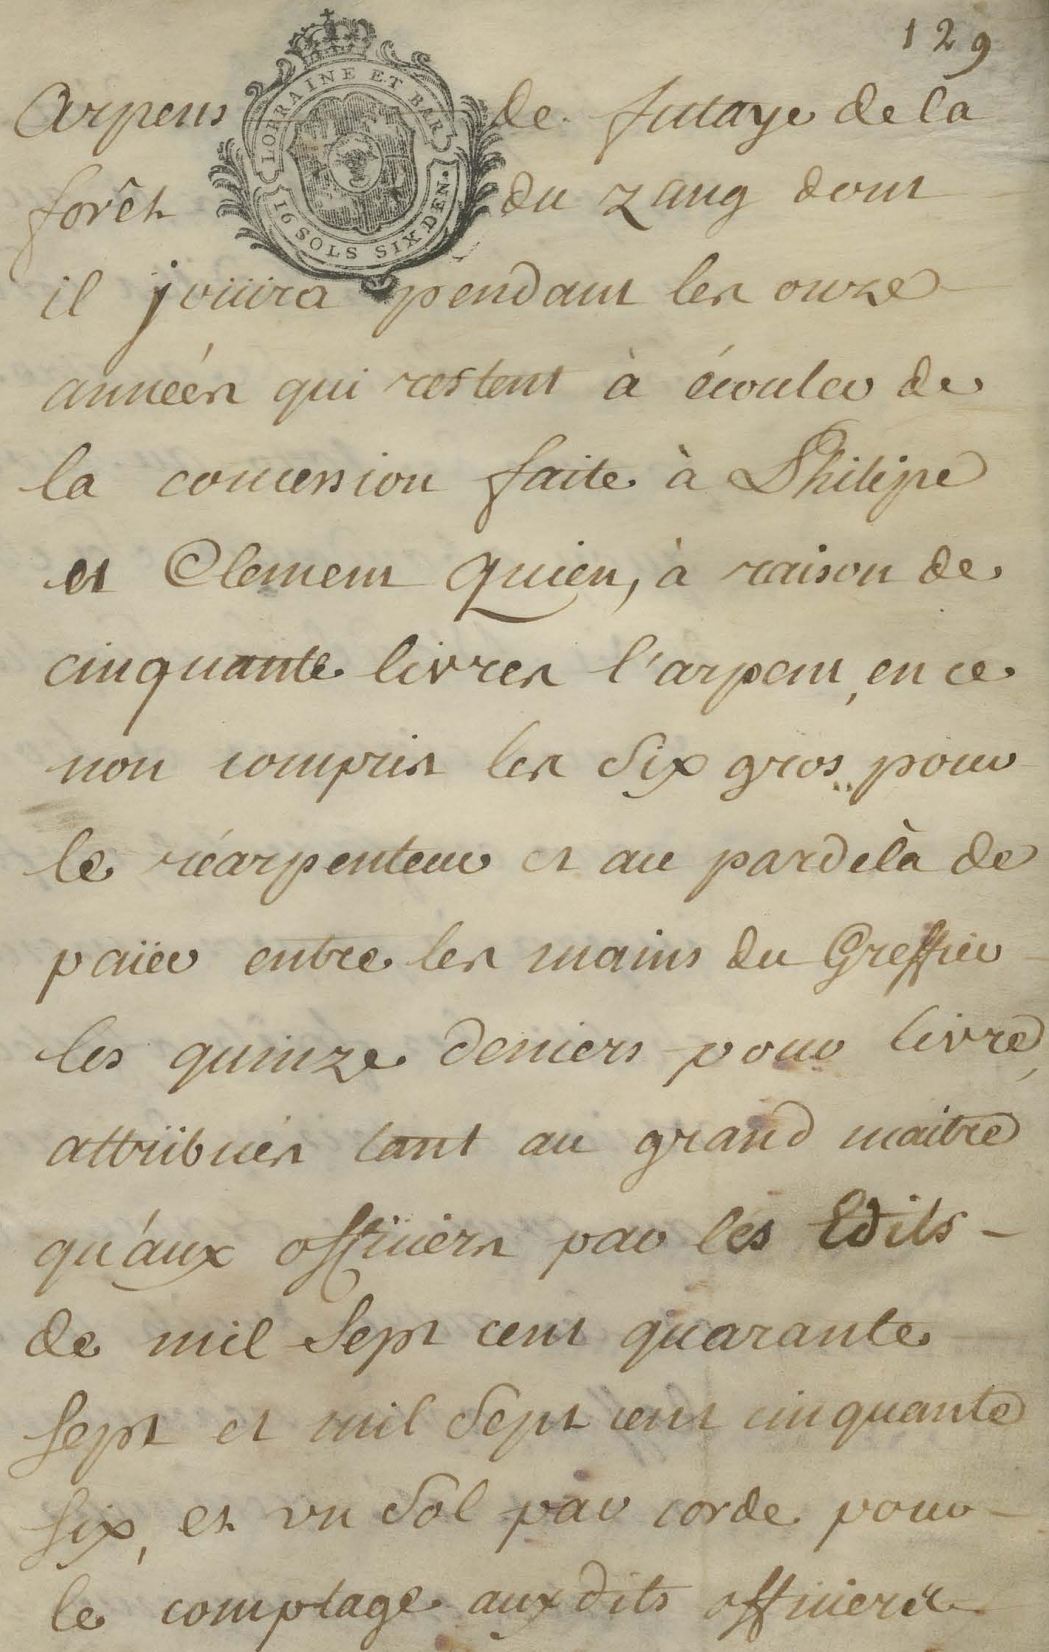 129
Arpens de futaye de la
LORRAINE ET BAR
16 SOLS SIX DEN.
forêt du zang dont
il jouira pendant les onze
années qui restent à écouler de
la concession faite à Philipe
et Clement Quien, à raison de
cinquante livres l'arpent, en ce
non compris les Six gros pour
le réarpenteur et au pardelà de
païer entre les mains du Greffier
les quinze deniers pour livre,
attribués tant au grand maitre
qu'aux officiers par les Edits
de mil Sept cent quarante
Sept et mil Sept cent cinquante
Six, et un Sol par corde pour
le comptage auxdits officiers